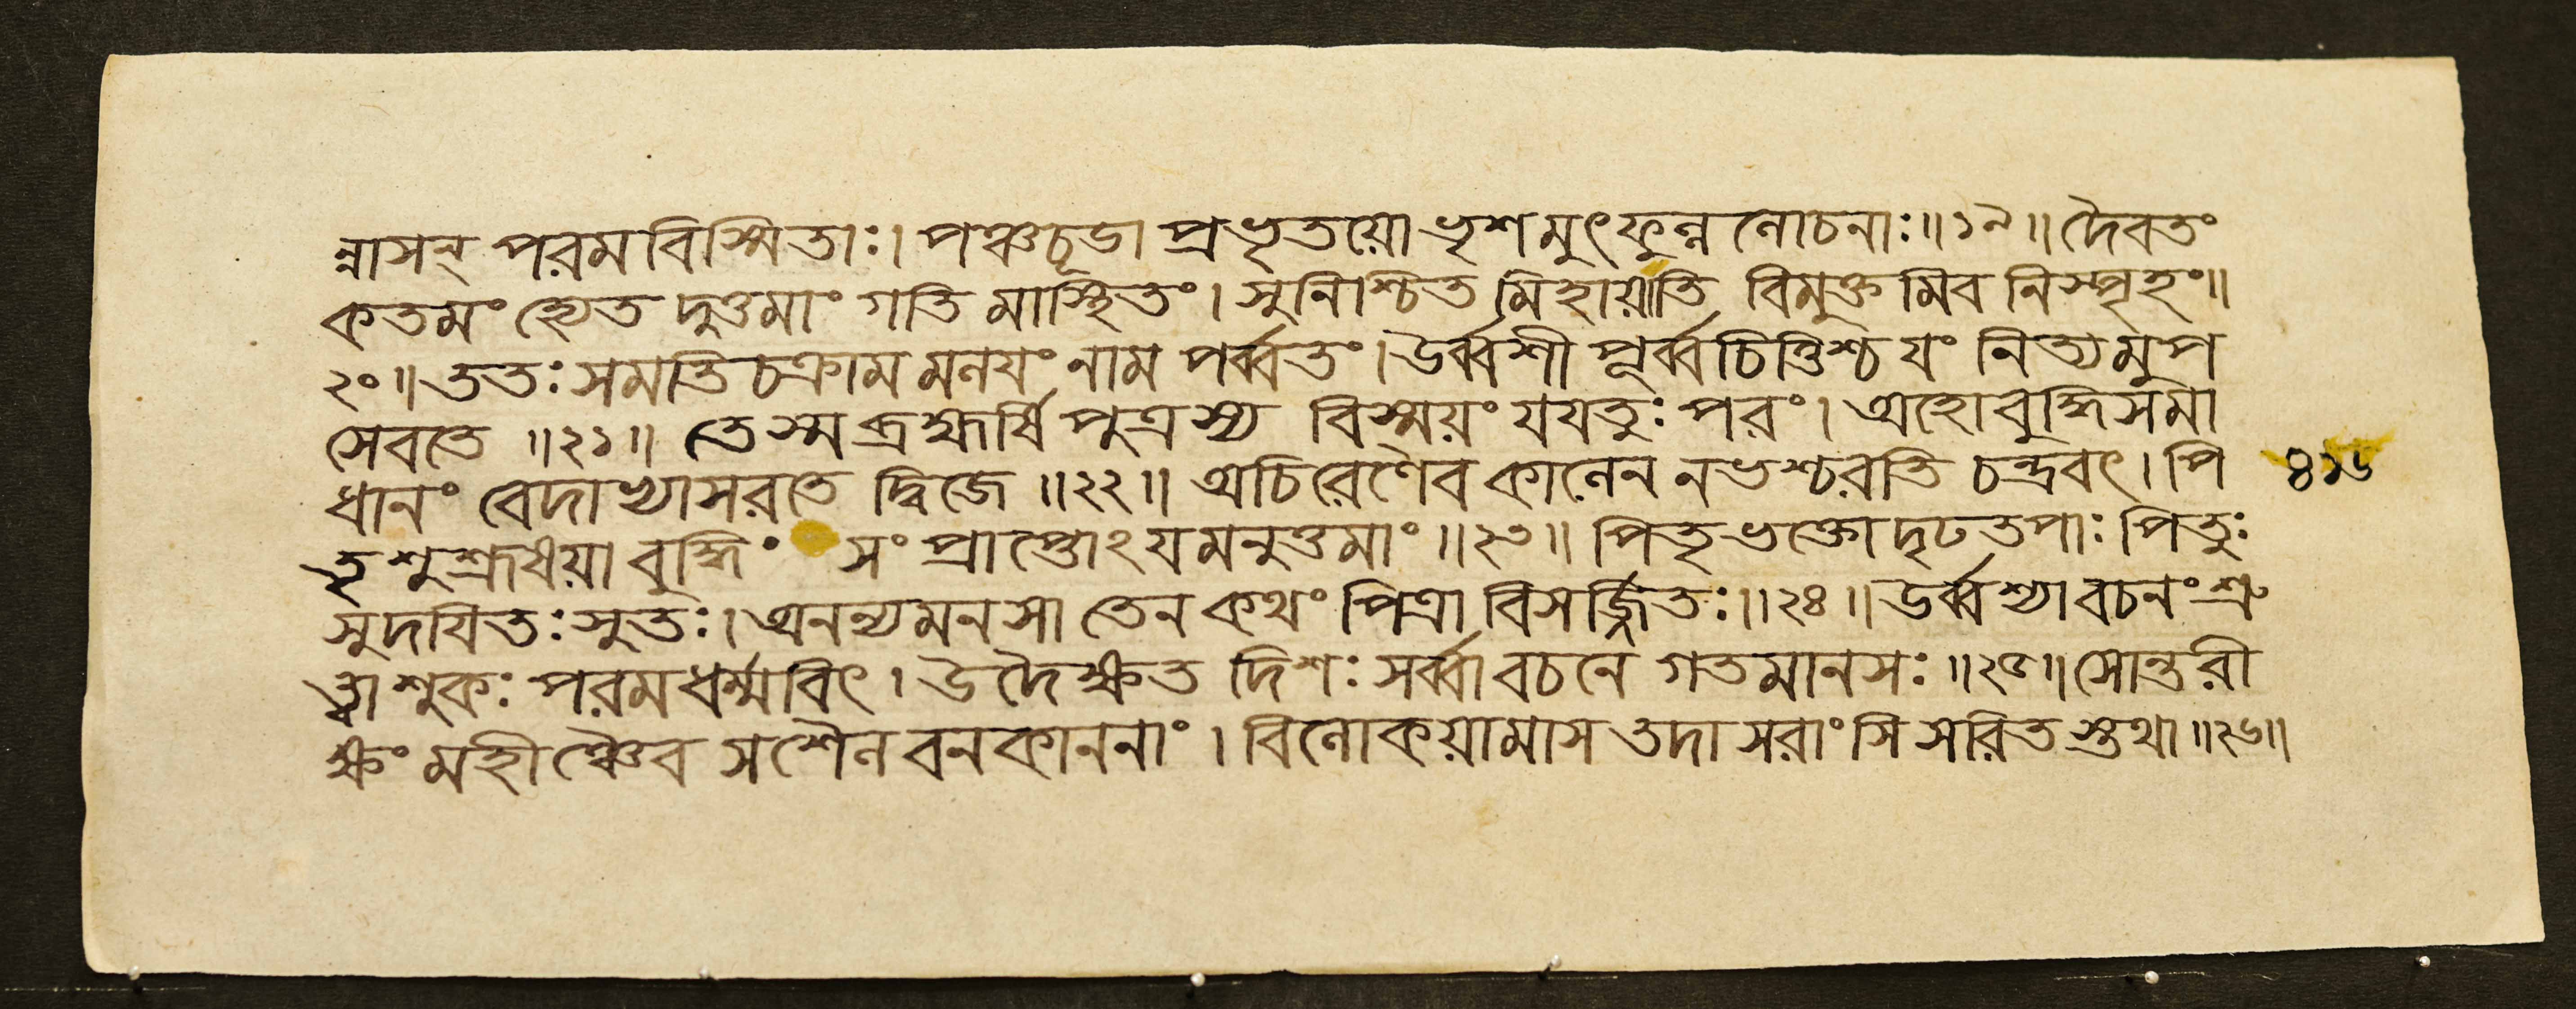 ন্নাসন্ পরমবিস্মিতাঃ। পঞ্চচূডা প্রভৃতয়ো ভৃশমুৎফুল্ল লোচনাঃ॥১৯॥ দৈবতং
কতমং হ্যেত দুত্তমাং গতি মাস্থিতং। সুনিশ্চিত মিহায়াতি বিমুক্ত মিব নিস্পৃহং॥
২০॥ ততঃ সমতিচক্রাম মলযং নাম পর্ব্বতং। উর্ব্বশী পূর্ব্বচিত্তিশ্চ যং নিত্যমুপ
সেবতে ॥২১॥ তে স্ম ব্রহ্মর্ষি পুত্রস্য বিস্ময়ং যযতুঃ পরং। অহো বুদ্ধিসমা
ধানং বেদাভ্যাসরতে দ্বিজে ॥২২॥ অচিরেণৈব কালেন নভশ্চরতি চন্দ্রবৎ। পি ৪১৬
তৃশুশ্রূষয়া বুদ্ধিং সংপ্রাপ্তোঽযমনুত্তমাং ॥২৩॥ পিতৃভক্তো দৃঢতপাঃ পিতুঃ
সুদযিতঃ সুতঃ। অনন্যমনসা তেন কথং পিত্রা বিসর্জ্জিতঃ॥২৪॥ উর্ব্বশ্যা বচনং শ্রু
ত্বা শুকঃ পরমধর্ম্মবিৎ। উদৈক্ষত দিশঃ সর্ব্বা বচনে গতমানসঃ ॥২৫॥ সোন্তরী
ক্ষং মহীঞ্চৈব সশৈলবনকাননাং। বিলোকয়ামাস তদা সরাংসি সরিতস্তথা ॥২৬॥